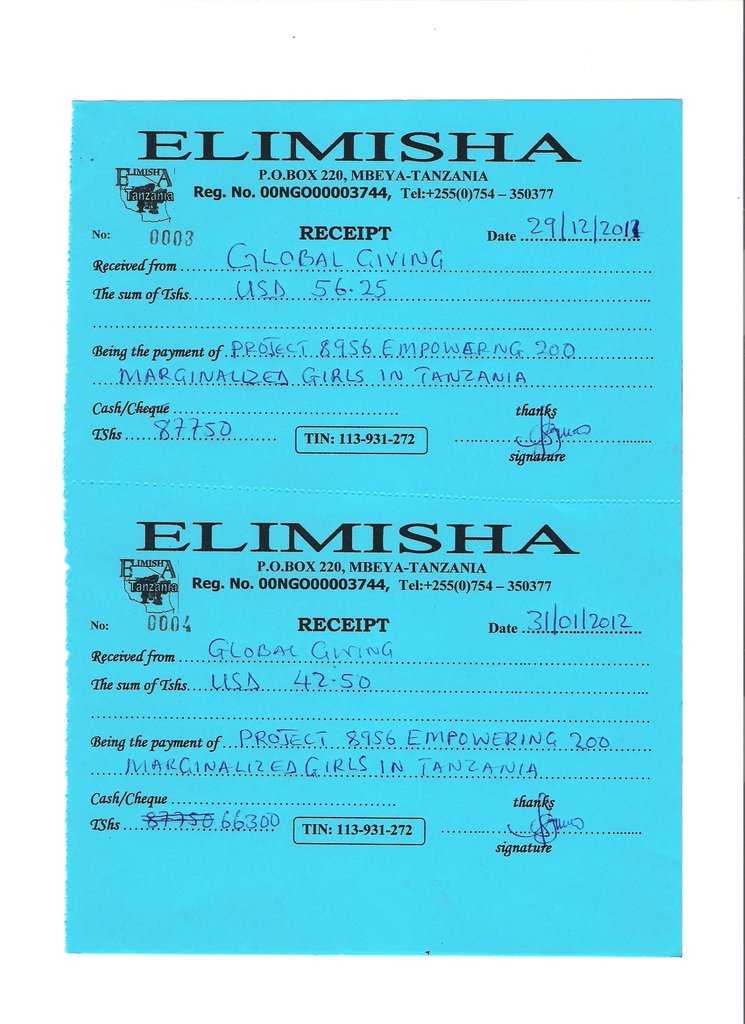 ELIMISHA
P.O.BOX 220, MBEYA-TANZANIA
ELIMISHA
Tanzania
Reg. No. 00NGO00003744, Tel:+255(0)754 – 350377
No: 0003 RECEIPT Date 29/12/2011
Received from GLOBAL GIVING
The sum of Tshs. USD 56.25
Being the payment of PROJECT 8956 EMPOWERNG 200
MARGINALIZED GIRLS IN TANZANIA
Cash/Cheque thanks
TShs 87750 TIN: 113-931-272
signature
ELIMISHA
P.O.BOX 220, MBEYA-TANZANIA
ELIMISHA
Tanzania
Reg. No. 00NGO00003744, Tel:+255(0)754 – 350377
No: 0004 RECEIPT Date 31/01/2012
Received from GLOBAL GIVING
The sum of Tshs. USD 42.50
Being the payment of PROJECT 8956 EMPOWERING 200
MARGINALIZED GIRLS IN TANZANIA
Cash/Cheque thanks
TShs 87750 66300 TIN: 113-931-272
signature